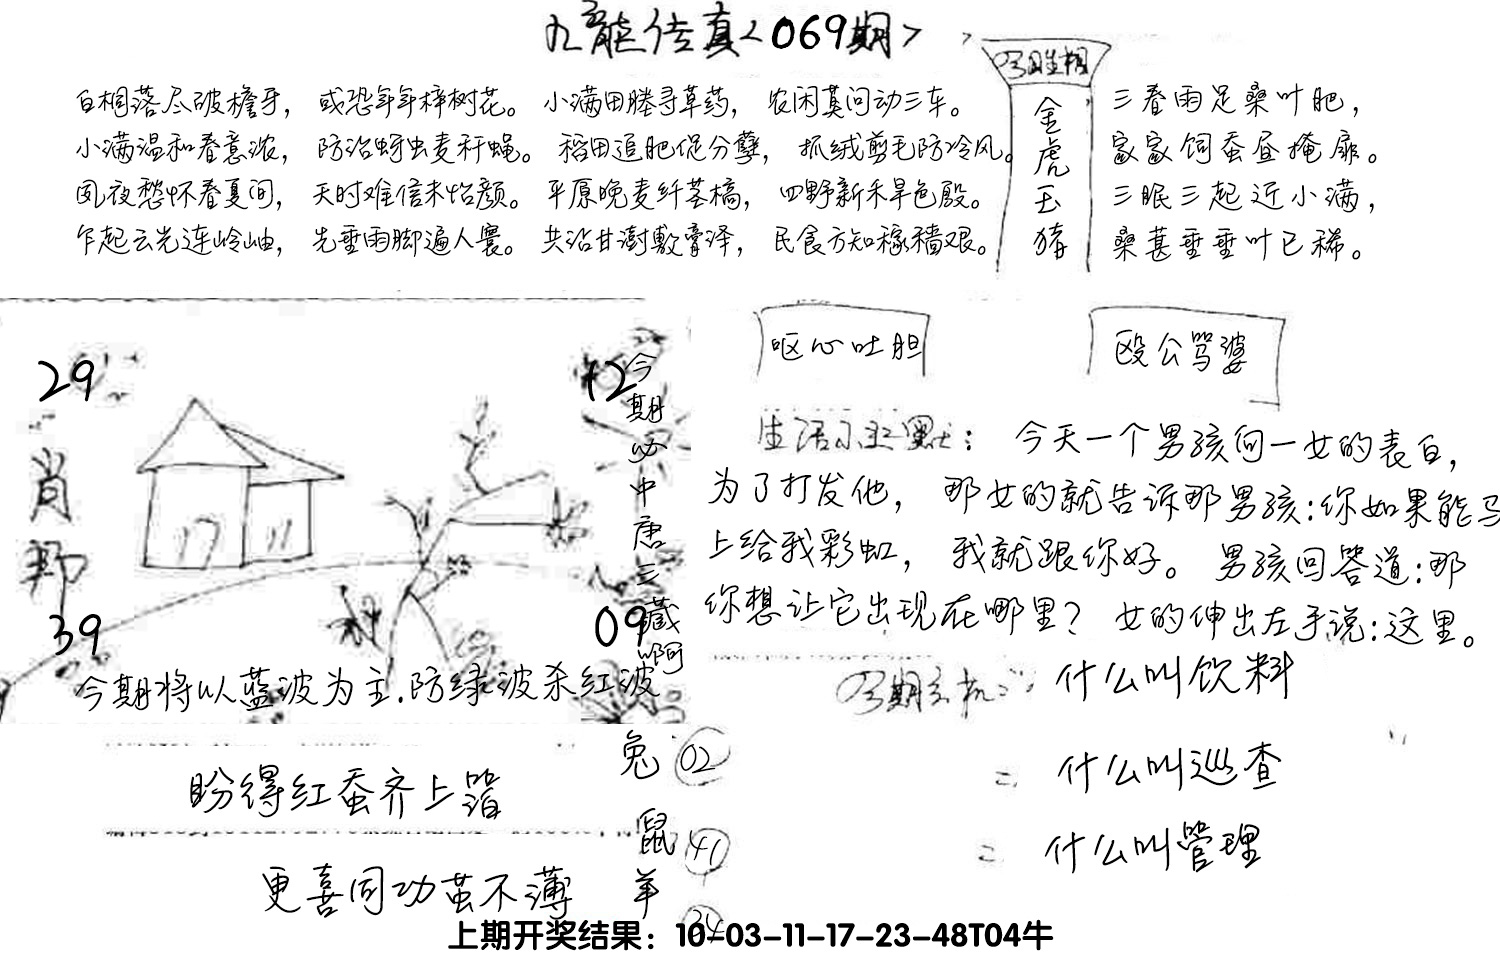 九龍传真<069期>
白桐落尽破檐牙，或恐年年梓树花。小满田塍寻草药，农闲莫问动三车。
小满温和春意浓，防治蚜虫麦秆蝇。稻田追肥促分孽，抓绒剪毛防冷风。
夙夜愁怀春夏间，天时难信未怡颜。平原晚麦纤茎槁，四野新禾旱色殷。
乍起云光连岭岫，先垂雨脚遍人寰。共沾甘澍敷膏泽，民食方知稼穑艰。
金虎玉猪
三春雨足桑叶肥，
家家饲蚕昼掩扉。
三眠三起近小满，
桑葚垂垂叶已稀。
29
12
肖
39
09
今期必中唐三藏啊
今期将以蓝波为主.防绿波杀红波
呕心吐胆
殴公骂婆
生活小幽默：今天一个男孩向一女的表白，
为了打发他，那女的就告诉那男孩:你如果能马
上给我彩虹，我就跟你好。男孩回答道:那
你想让它出现在哪里？女的伸出左手说:这里。
什么叫饮料
= 什么叫巡查
= 什么叫管理
盼得红蚕齐上箔
更喜同功茧不薄
兔 02
鼠 41
羊 34
上期开奖结果：10-03-11-17-23-48T04牛